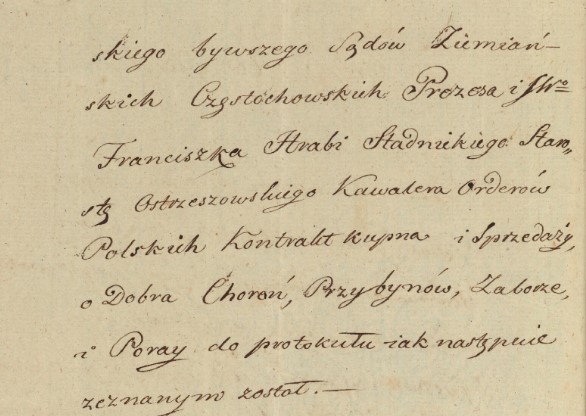 skiego bywszego Sądów Ziemiań-
skich Częstochowskich Prezesa i JWo
Franciszka Hrabi Stadnickiego Staro„
stę Ostrzeszowskiego Kawalera Orderów
Polskich Kontrakt kupna i Sprzedaży,
o Dobra Choroń, Przybynów, Zaborze,
i Poray do protokułu iak następuie
zeznanym został. —